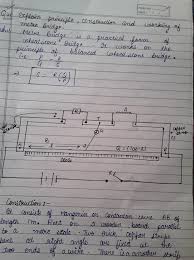 Q. Explain principle, construction and working of
metre bridge.
Metre bridge is a practical form of
wheatstone bridge. It works on the
principle of balanced wheatstone bridge.
i.e.
P/Q = R/S
⇒ S = R(Q/P)
(R)
S
A
B
Construction:
It consists of manganin or constantan wire AB of
length 1m fixed on a wooden board parallel
to a metre scale. Two thick copper strips
bent at right angle are fixed at the
two ends of a wire. There is another strip